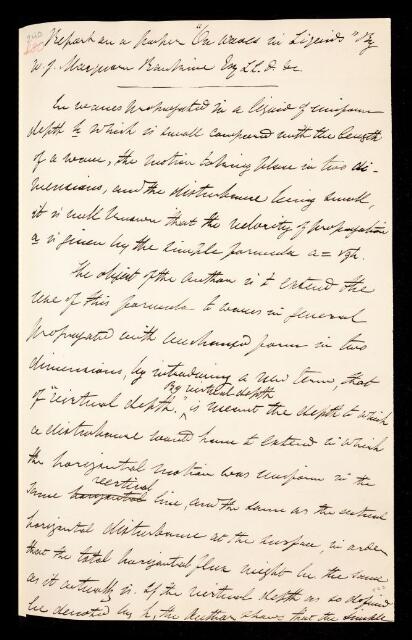 Report on a paper "On waves in Liquids" By
W. J. Macquorn Rankine Esq LL.D. &c
In waves propagated in a liquid of uniform
depth h which is small compared with the length
of a wave, the motion taking place in two di-
mensions, and the disturbance being small,
it is well known that the velocity of propagation
a is given by the simple formula a = √gh.
The object of the author is to extend the
use of this formula to waves in general
propagated with unchanged form in two
dimensions, by introducing a new term, that
of "virtual depth." By virtual depth is meant the depth to which
a disturbance would have to extend in which
the horizontal motion was uniform in the
same horizontal vertical line, and the same as the actual
horizontal disturbance at the surface, in order
that the total horizontal flux might be the same
as it actually is. If the virtual depth as so defined
be denoted by k, the author shows that the simple